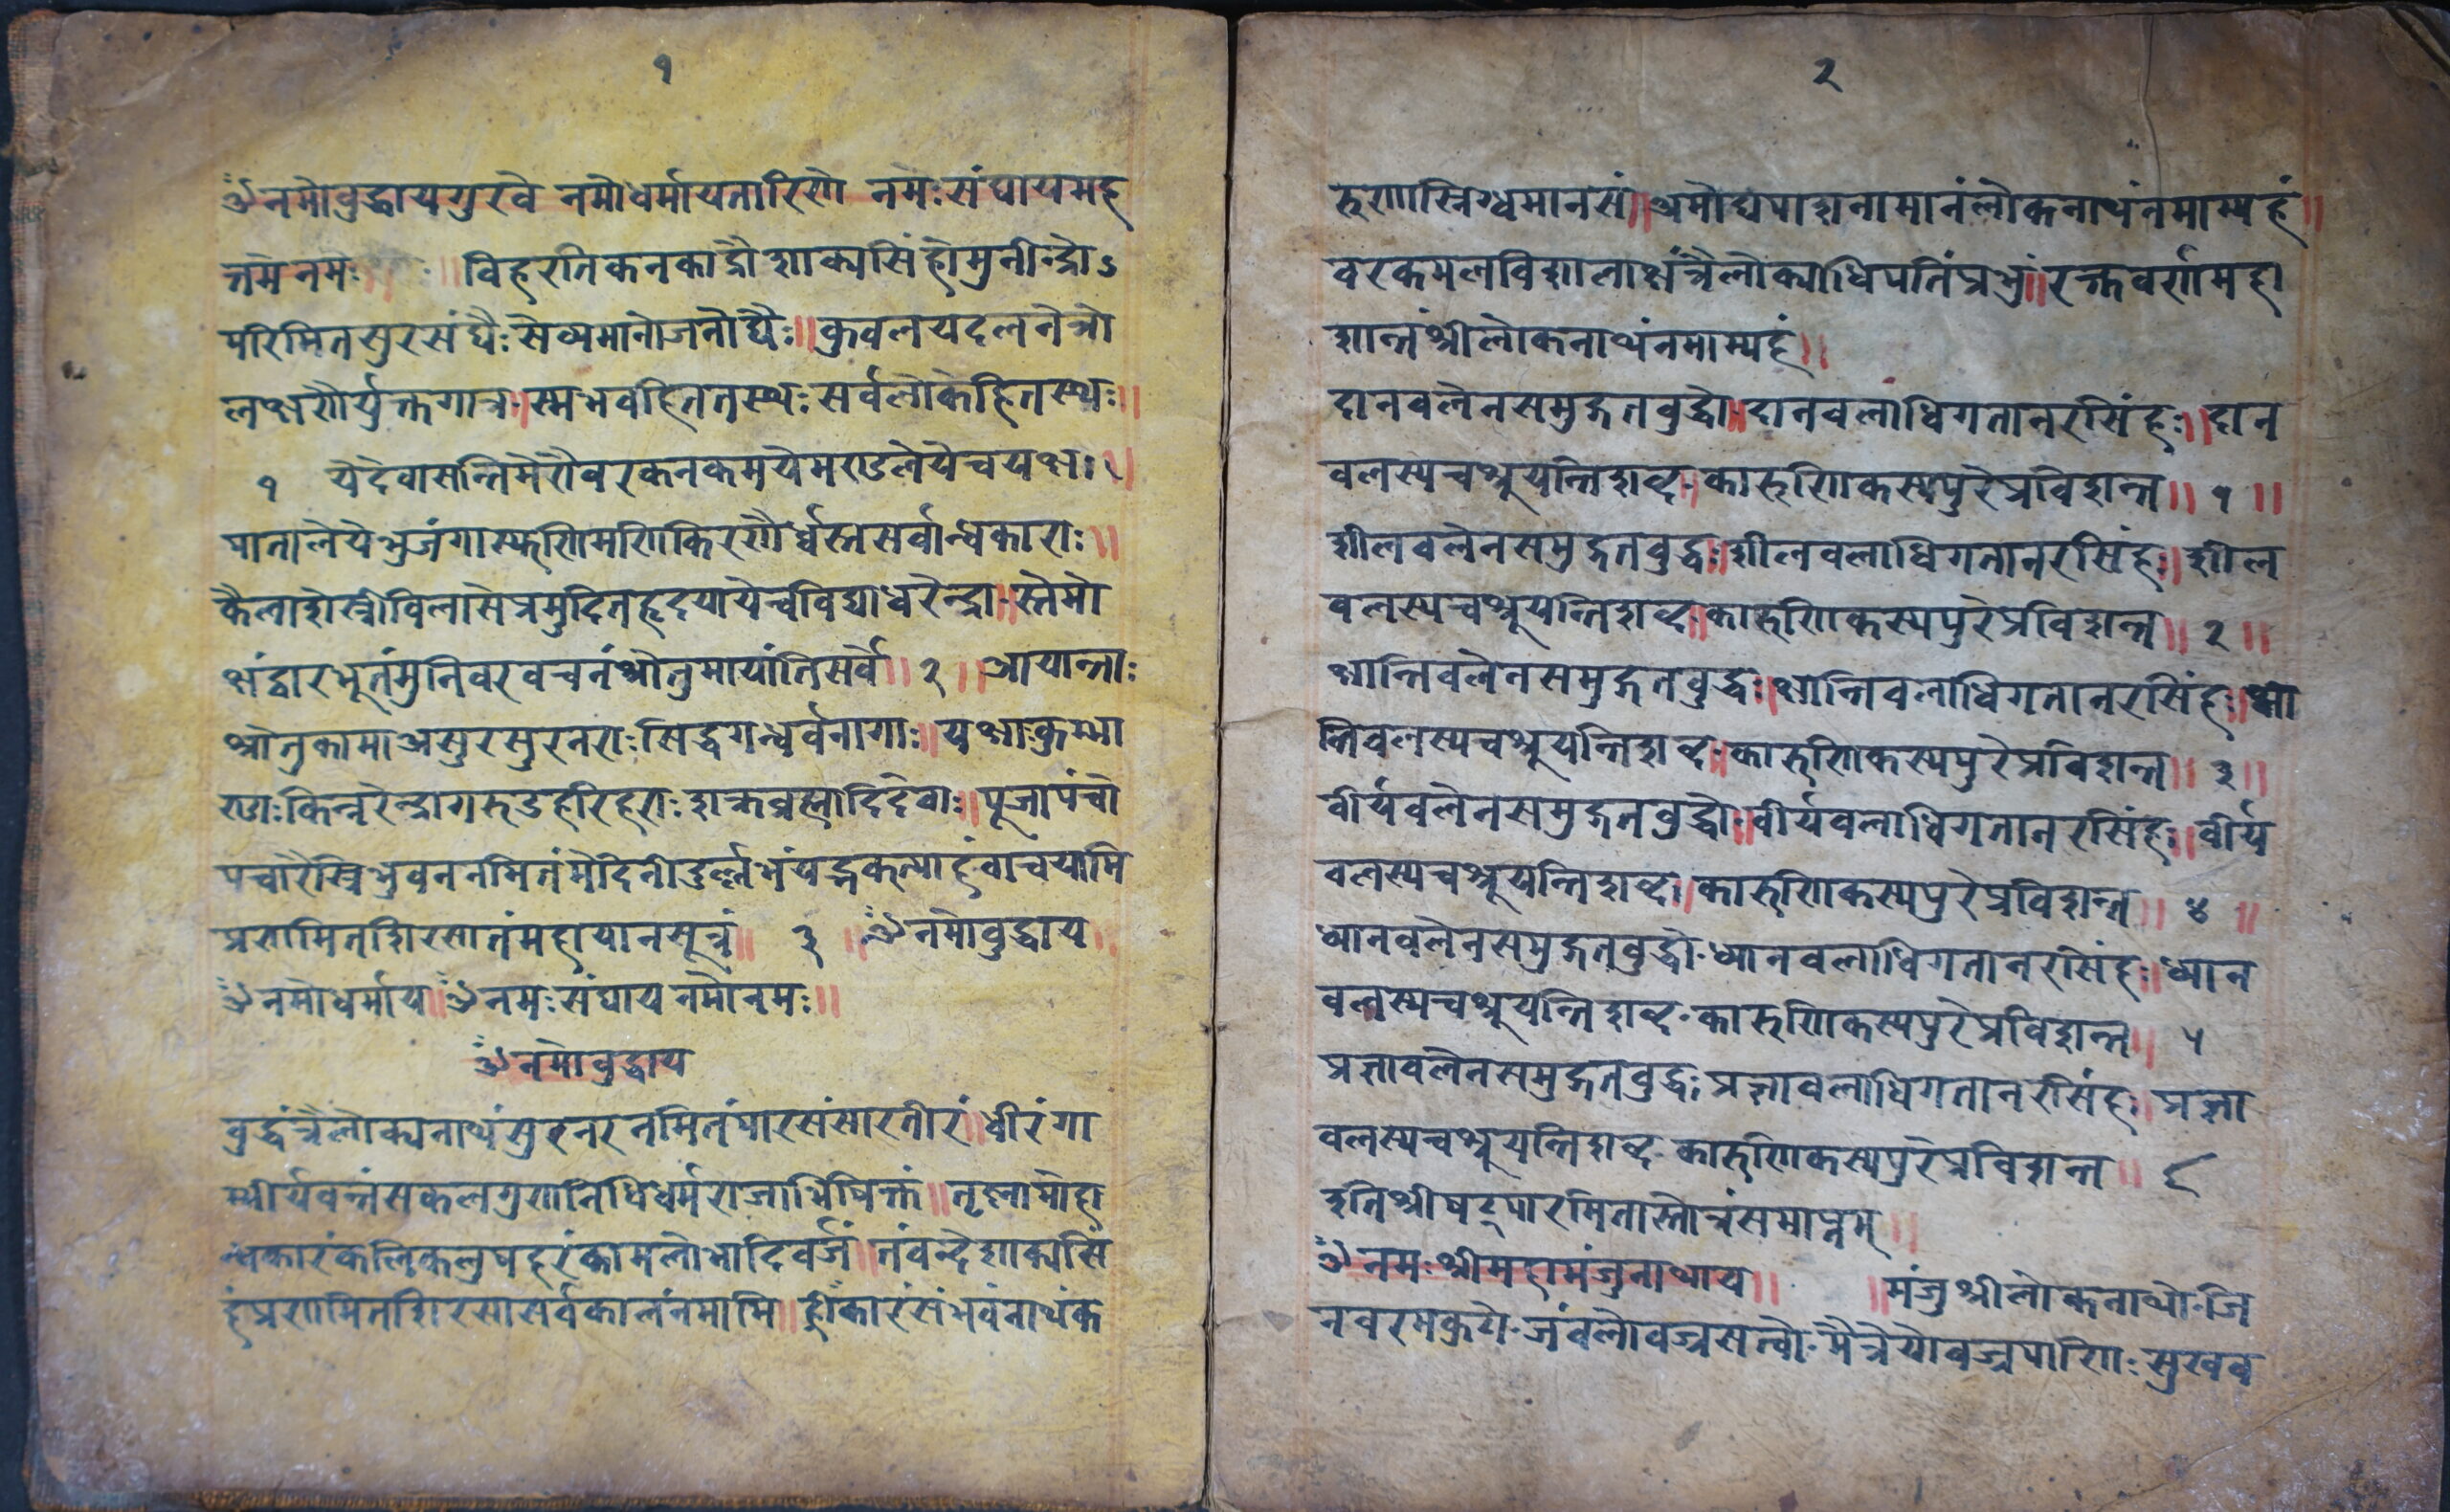 १
ॐ नमोवुद्धायगुरवे नमोधर्मायतारिणे नमः संघायमह
त्तमे नमः ॥ ॥ विहरतिकनकाद्रौ शाक्यसिंहोमुनीन्द्रोऽ
परिमितसुरसंघैः सेव्यमानोजनौघैः ॥ कुवलयदलनेत्रो
लक्षणैर्युक्तगात्र ॥ स्मभवहिततस्थः सर्वलोकेहितस्थः ॥
१ येदेवासन्तिमेरौवरकनकमयेमण्डलेयेचयक्षा ॥
पातालेयेभुजंगास्फणिमणिकिरणैर्ध्वस्तसर्वान्धकाराः ॥
कैलाशेस्त्रीविलासेप्रमुदितहृदयायेचविद्याधरेन्द्रा ॥ स्तेमो
क्षंद्वारभूतंमुनिवरवचनंश्रोतुमायांतिसर्वे ॥ २ ॥ आयान्ताः
श्रोतुकामाअसुरसुरनराः सिद्धगन्धर्वनागाः ॥ यक्षाकुम्भा
ण्डाः किन्नरेन्द्रागरुडहरिहराः शक्रब्रह्मादिदेवाः ॥ पूजापंचो
पचारैस्त्रिभुवननमितंमेदिनीदुर्ल्लभंयद्भक्त्याहंवाचयामि
प्रणमितशिरसातंमहायानसूत्रं ॥ ३ ॥ ॐ नमोवुद्धाय
ॐ नमोधर्माय ॥ ॐ नमः संघायनमोनमः ॥
ॐ नमोवुद्धाय
वुद्धंत्रैलोक्यनाथंसुरनरनमितंपारसंसारतीरं ॥ धीरंगा
म्भीर्यवन्तंसकलगुणनिधिधर्मराजाभिषिक्तं ॥ तृष्णामोहा
न्धकारंकलिकलुषहरंकामलोभादिवर्जं ॥ तंवन्देशाक्यसिं
हंप्रणमितशिरसासर्वकालंनमामि ॥ ह्रीँकारंसंभवंनाथंक
२
रुणास्निग्धमानसं ॥ अमोघपाशनामानंलोकनाथंनमाम्यहं ॥
वरकमलविशालाक्षंत्रैलोक्याधिपतिंप्रभुं ॥ रक्तवर्णमहा
शान्तंश्रीलोकनाथंनमाम्यहं ॥
दानवलेनसमुद्गतवुद्धो ॥ दानवलाधिगतानरसिंहः ॥ दान
वलस्यचश्रूयन्तिशव्द ॥ कारुणिकस्यपुरेप्रविशन्त ॥ १ ॥
शीलवलेनसमुद्गतवुद्धः ॥ शीलवलाधिगतानरसिंहः ॥ शील
वलस्यचश्रूयन्तिशव्द ॥ कारुणिकस्यपुरेप्रविशन्त ॥ २ ॥
क्षान्तिवलेनसमुद्गतवुद्धः ॥ क्षान्तिवलाधिगतानरसिंहः ॥ क्षा
न्तिवलस्यचश्रूयन्तिशव्द ॥ कारुणिकस्यपुरेप्रविशन्त ॥ ३ ॥
वीर्यवलेनसमुद्गतवुद्धो ॥ वीर्यवलाधिगतानरसिंहः ॥ वीर्य
वलस्यचश्रूयन्तिशव्द ॥ कारुणिकस्यपुरेप्रविशन्त ॥ ४ ॥
ध्यानवलेनसमुद्गतवुद्धो ॥ ध्यानवलाधिगतानरसिंहः ॥ ध्यान
वलस्यचश्रूयन्तिशव्द ॥ कारुणिकस्यपुरेप्रविशन्त ॥ ५
प्रज्ञावलेनसमुद्गतवुद्धः प्रज्ञावलाधिगतानरसिंहः ॥ प्रज्ञा
वलस्यचश्रूयन्तिशव्द ॥ कारुणिकस्यपुरेप्रविशन्त ॥ ६
इतिश्रीषट्पारमितास्तोत्रंसमाप्तम् ॥
ॐ नमः श्रीमहामंजुनाथाय ॥ ॥ मंजुश्रीलोकनाथो जि
नवरमकुटो जंवलोवज्रसत्वो मैत्रेयोवज्रपाणिः सुखव